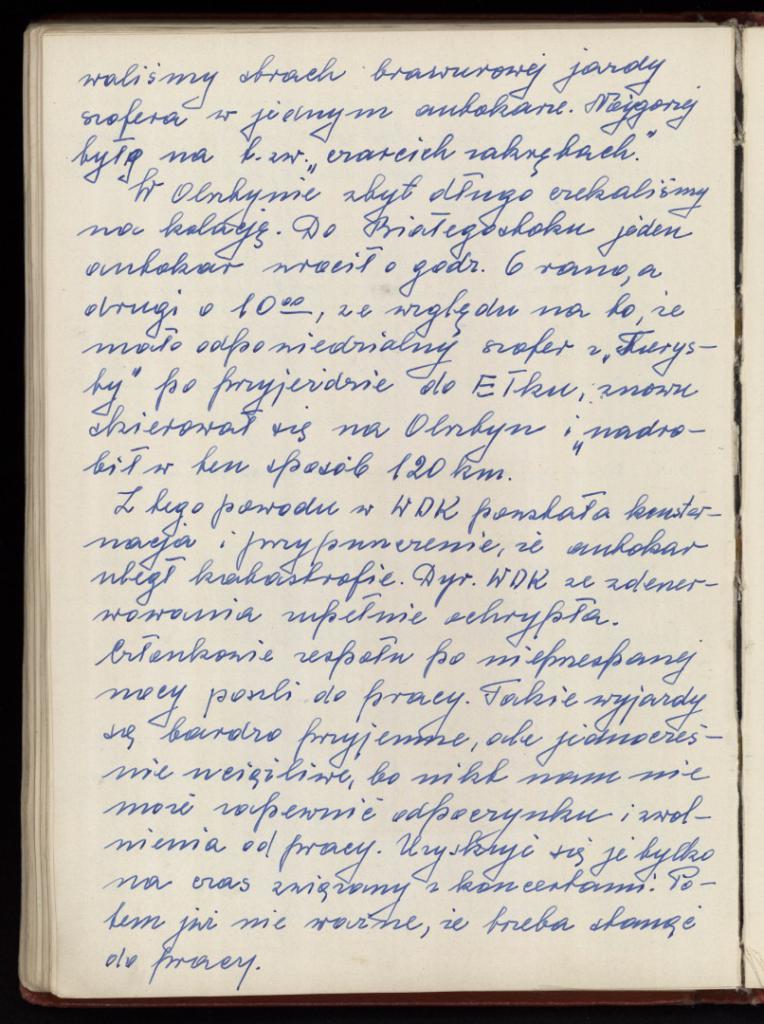 waliśmy strach brawurowej jazdy
szofera w jednym autokarze. Najgorzej
było na t.zw. „czarcich zakrętach."
W Olsztynie zbyt długo czekaliśmy
na kolację. Do Białegostoku jeden
autokar wrócił o godz. 6 rano, a
drugi o 10⁰⁰, ze względu na to, że
mało odpowiedzialny szofer z „Turys-
ty" po przyjeździe do Ełku, znowu
skierował się na Olsztyn i „nadro-
bił w ten sposób 120 km.
Z tego powodu w WDK powstała konster-
nacja i przypuszczenie, że autokar
uległ katastrofie. Dyr. WDK ze zdener-
wowania zupełnie ochrypła.
Członkowie zespołu po nieprzespanej
nocy poszli do pracy. Takie wyjazdy
są bardzo przyjemne, ale jednocześ-
nie uciążliwe, bo nikt nam nie
może zapewnić odpoczynku i zwol-
nienia od pracy. Uzyskuje się je tylko
na czas związany z koncertami. Po-
tem już nie ważne, że trzeba stanąć
do pracy.